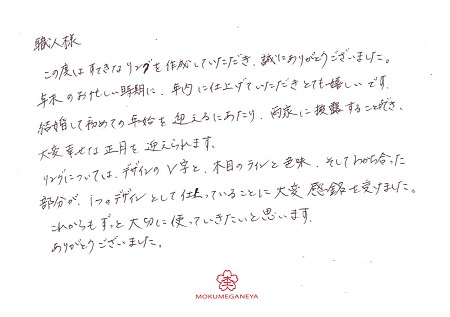 職人様
この度はすてきなリングを作成していただき、誠にありがとうございました。
年末のお忙しい時期に、年内に仕上げていただきとても嬉しいです。
結婚して初めての年始を迎えるにあたり、両家に披露することができ、
大変幸せな正月を迎えられます。
リングについては、デザインのV字と、木目のラインと色味、そしてわかち合った
部分が、1つのデザインとして仕上っていることに大変感銘を受けました。
これからもずっと大切に使っていきたいと思います。
ありがとうございました。
MOKUMEGANEYA